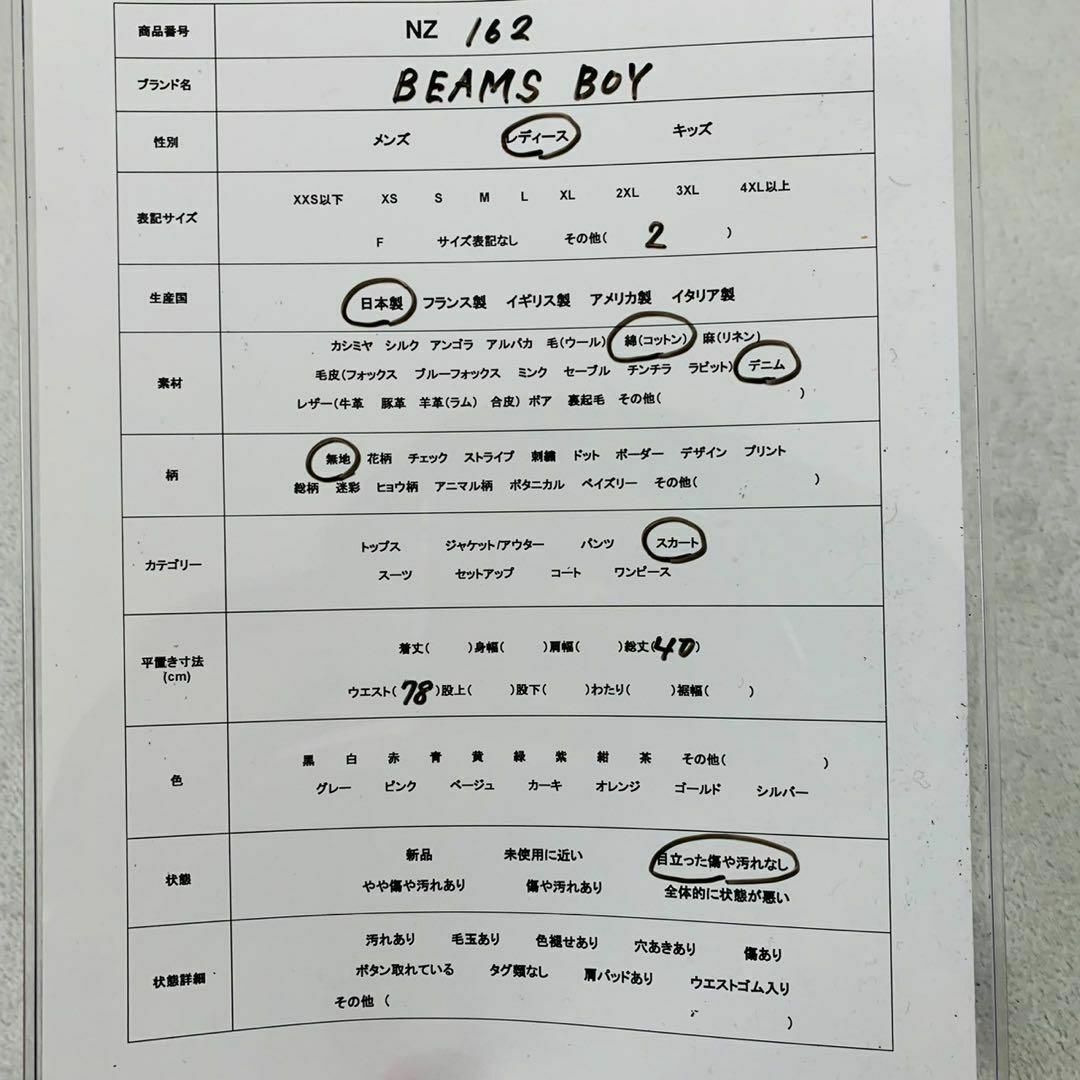 商品番号 NZ 162
ブランド名 BEAMS BOY
性別 メンズ レディース キッズ
表記サイズ
XXS以下 XS S M L XL 2XL 3XL 4XL以上
F サイズ表記なし その他( 2 )
生産国 日本製 フランス製 イギリス製 アメリカ製 イタリア製
素材
カシミヤ シルク アンゴラ アルパカ 毛(ウール) 綿(コットン) 麻(リネン)
毛皮(フォックス ブルーフォックス ミンク セーブル チンチラ ラビット) デニム
レザー(牛革 豚革 羊革(ラム) 合皮) ボア 裏起毛 その他( )
柄
無地 花柄 チェック ストライプ 刺繍 ドット ボーダー デザイン プリント
総柄 迷彩 ヒョウ柄 アニマル柄 ボタニカル ペイズリー その他( )
カテゴリー
トップス ジャケット/アウター パンツ スカート
スーツ セットアップ コート ワンピース
平置き寸法
(cm)
着丈( )身幅( )肩幅( )総丈(40)
ウエスト(78)股上( )股下( )わたり( )裾幅( )
色
黒 白 赤 青 黄 緑 紫 紺 茶 その他( )
グレー ピンク ベージュ カーキ オレンジ ゴールド シルバー
状態
新品 未使用に近い 目立った傷や汚れなし
やや傷や汚れあり 傷や汚れあり 全体的に状態が悪い
状態詳細
汚れあり 毛玉あり 色褪せあり 穴あきあり 傷あり
ボタン取れている タグ類なし 肩パッドあり ウエストゴム入り
その他 ( )